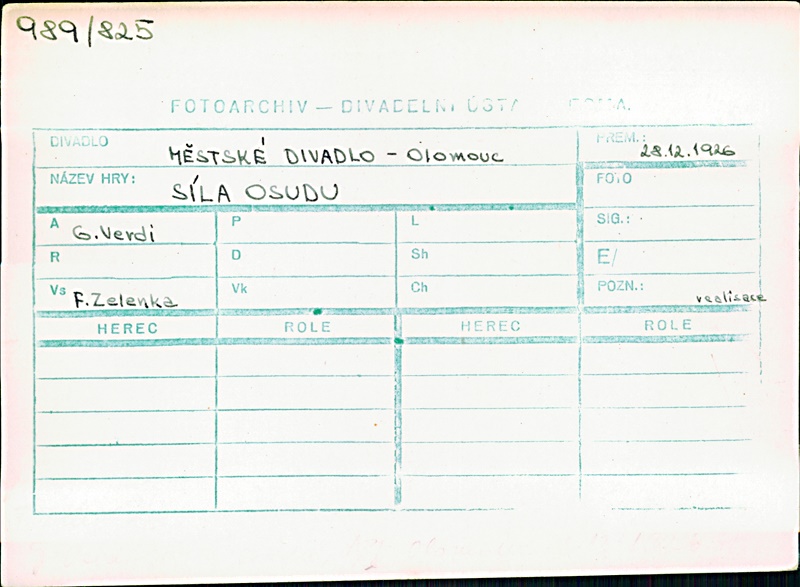 989/825
FOTOARCHIV — DIVADELNÍ
DIVADLO MĚSTSKÉ DIVADLO - Olomouc PREM.: 28.12.1926
NÁZEV HRY: SÍLA OSUDU FOTO
A G. Verdi P L SIG.:
R D Sh E/
Vs F. Zelenka Vk Ch POZN.: realisace
HEREC ROLE HEREC ROLE